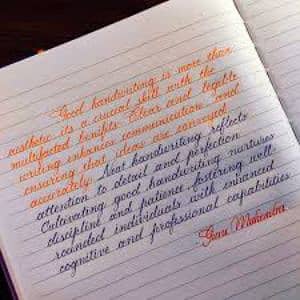 Good handwriting is more than
aesthetic, its a crucial skill with the
multifacted benifits. Clear and legible
writing enhances communication and
ensuring that ideas are conveyed
accurately. Neat handwriting reflects
attention to detail and perfection
Cultivating good handwriting nurtures
discipline and patience fostering well-
rounded individuals with enhanced
cognitive and professional capabilities
-Guru Mahendra